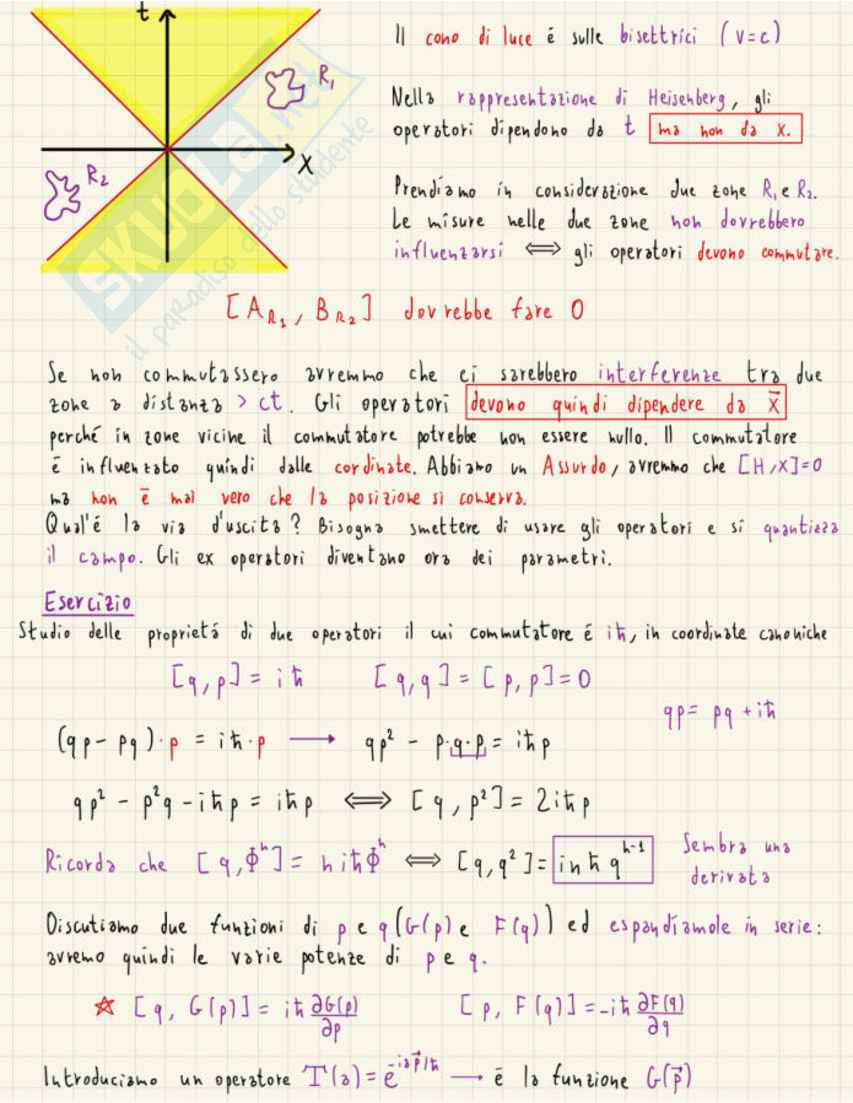 t
Il cono di luce é sulle bisettrici (v=c)
R₁
Nella rappresentazione di Heisenberg, gli
operatori dipendono da t ma non da x.
X
R₂
Prendiamo in considerazione due zone R₁ e R₂.
Le misure nelle due zone non dovrebbero
influenzarsi ⟺ gli operatori devono commutare.
SKUOLA.net
il paradiso dello studente
[A_R₁, B_R₂] dovrebbe fare 0
Se non commutassero avremmo che ci sarebbero interferenze tra due
zone a distanza > ct. Gli operatori devono quindi dipendere da x⃗
perché in zone vicine il commutatore potrebbe non essere nullo. Il commutatore
é influenzato quindi dalle cordinate. Abbiamo un Assurdo, avremmo che [H,x]=0
ma non é mai vero che la posizione si conserva.
Qual'é la via d'uscita? Bisogna smettere di usare gli operatori e si quantizza
il campo. Gli ex operatori diventano ora dei parametri.
Esercizio
Studio delle proprietá di due operatori il cui commutatore é iħ, in coordinate canoniche
[q,p] = iħ [q,q] = [p,p] = 0
qp = pq + iħ
(qp - pq)·p = iħ·p ⟶ qp² - p·q·p = iħp
qp² - p²q - iħp = iħp ⟺ [q, p²] = 2iħp
Ricorda che [q,Φʰ] = hiħΦʰ ⟺ [q,q²] = inħq^(h-1) Sembra una
derivata
Discutiamo due funzioni di p e q (G(p) e F(q)) ed espandiamole in serie:
avremo quindi le varie potenze di p e q.
☆ [q, G(p)] = iħ ∂G(p)/∂p [p, F(q)] = -iħ ∂F(q)/∂q
Introduciamo un operatore T(a) = e^(-iap⃗/ħ) ⟶ é la funzione G(p⃗)